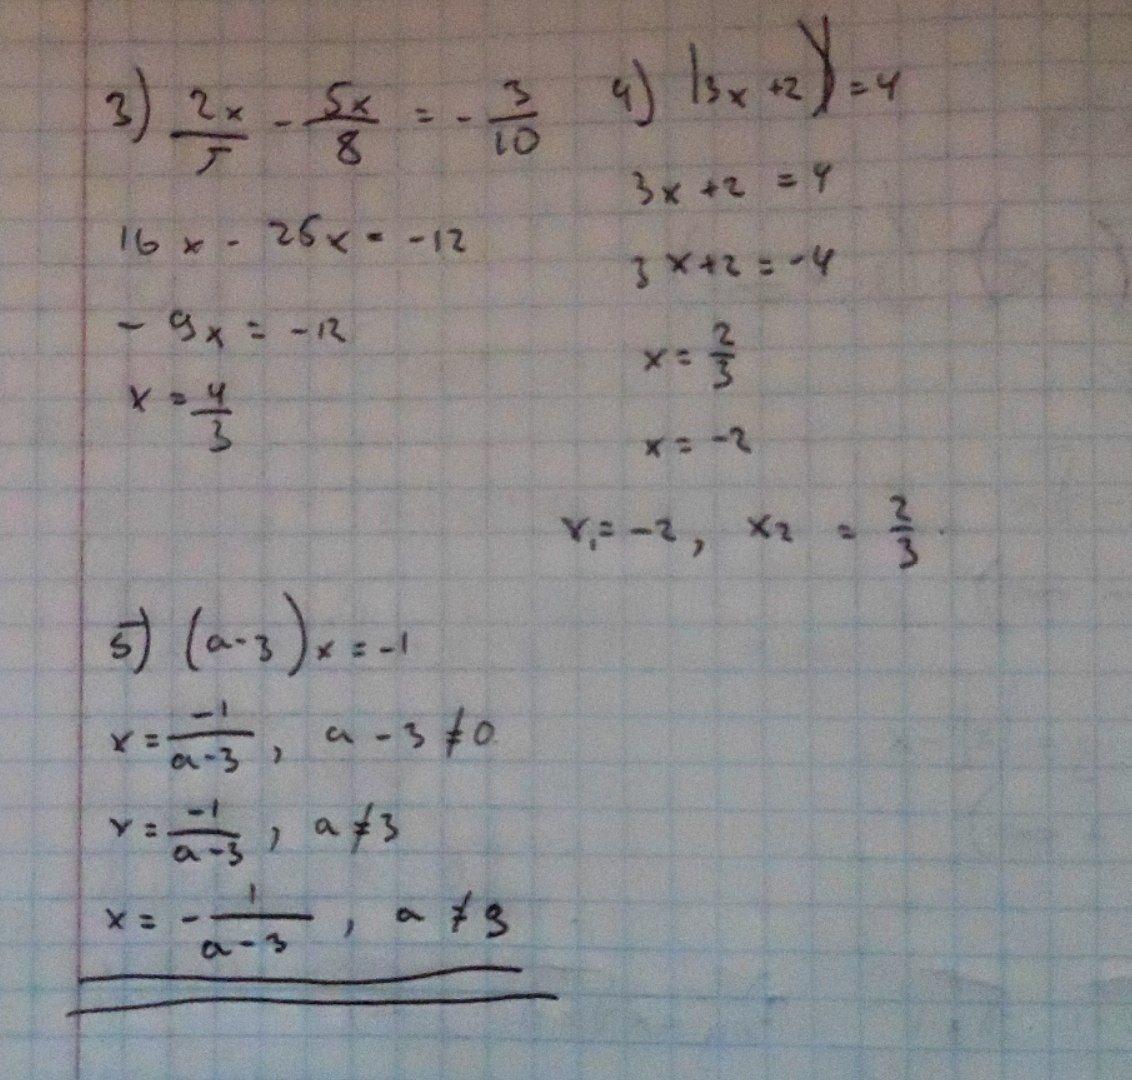 3) 2x/5 - 5x/8 = - 3/10
16x - 25x = -12
- 9x = -12
x = 4/3
4) |3x +2| = 4
3x +2 = 4
3x+2 = -4
x = 2/3
x = -2
x₁ = -2, x2 = 2/3
5) (a-3)x = -1
x = -1/(a-3), a - 3 ≠ 0
x = -1/(a-3), a ≠ 3
x = - 1/(a-3), a ≠ 3